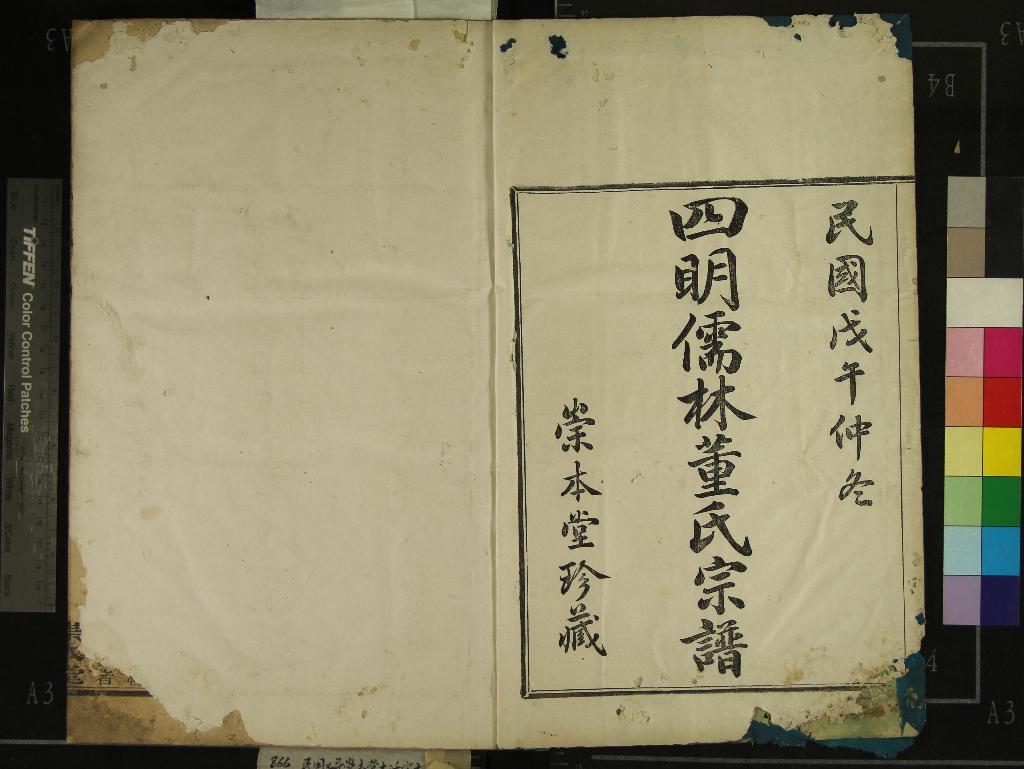 民國戊午仲冬
四明儒林董氏宗譜
崇本堂珍藏
TIFFEN Color Control Patches
A3
A3
A3
A3
B4
866